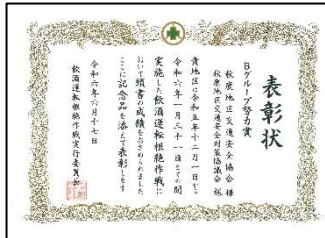 表彰状
Bグループ努力賞
秋鹿地区交通安全協会 様
秋鹿地区交通安全対策協議会 様
貴地区は令和五年十二月一日から
令和六年一月三十一日までの間
実施した飲酒運転根絶作戦に
おいて頭書の成績をおさめられました
ここに記念品を添えて表彰します
令和六年六月十七日
飲酒運転根絶作戦実行委員長